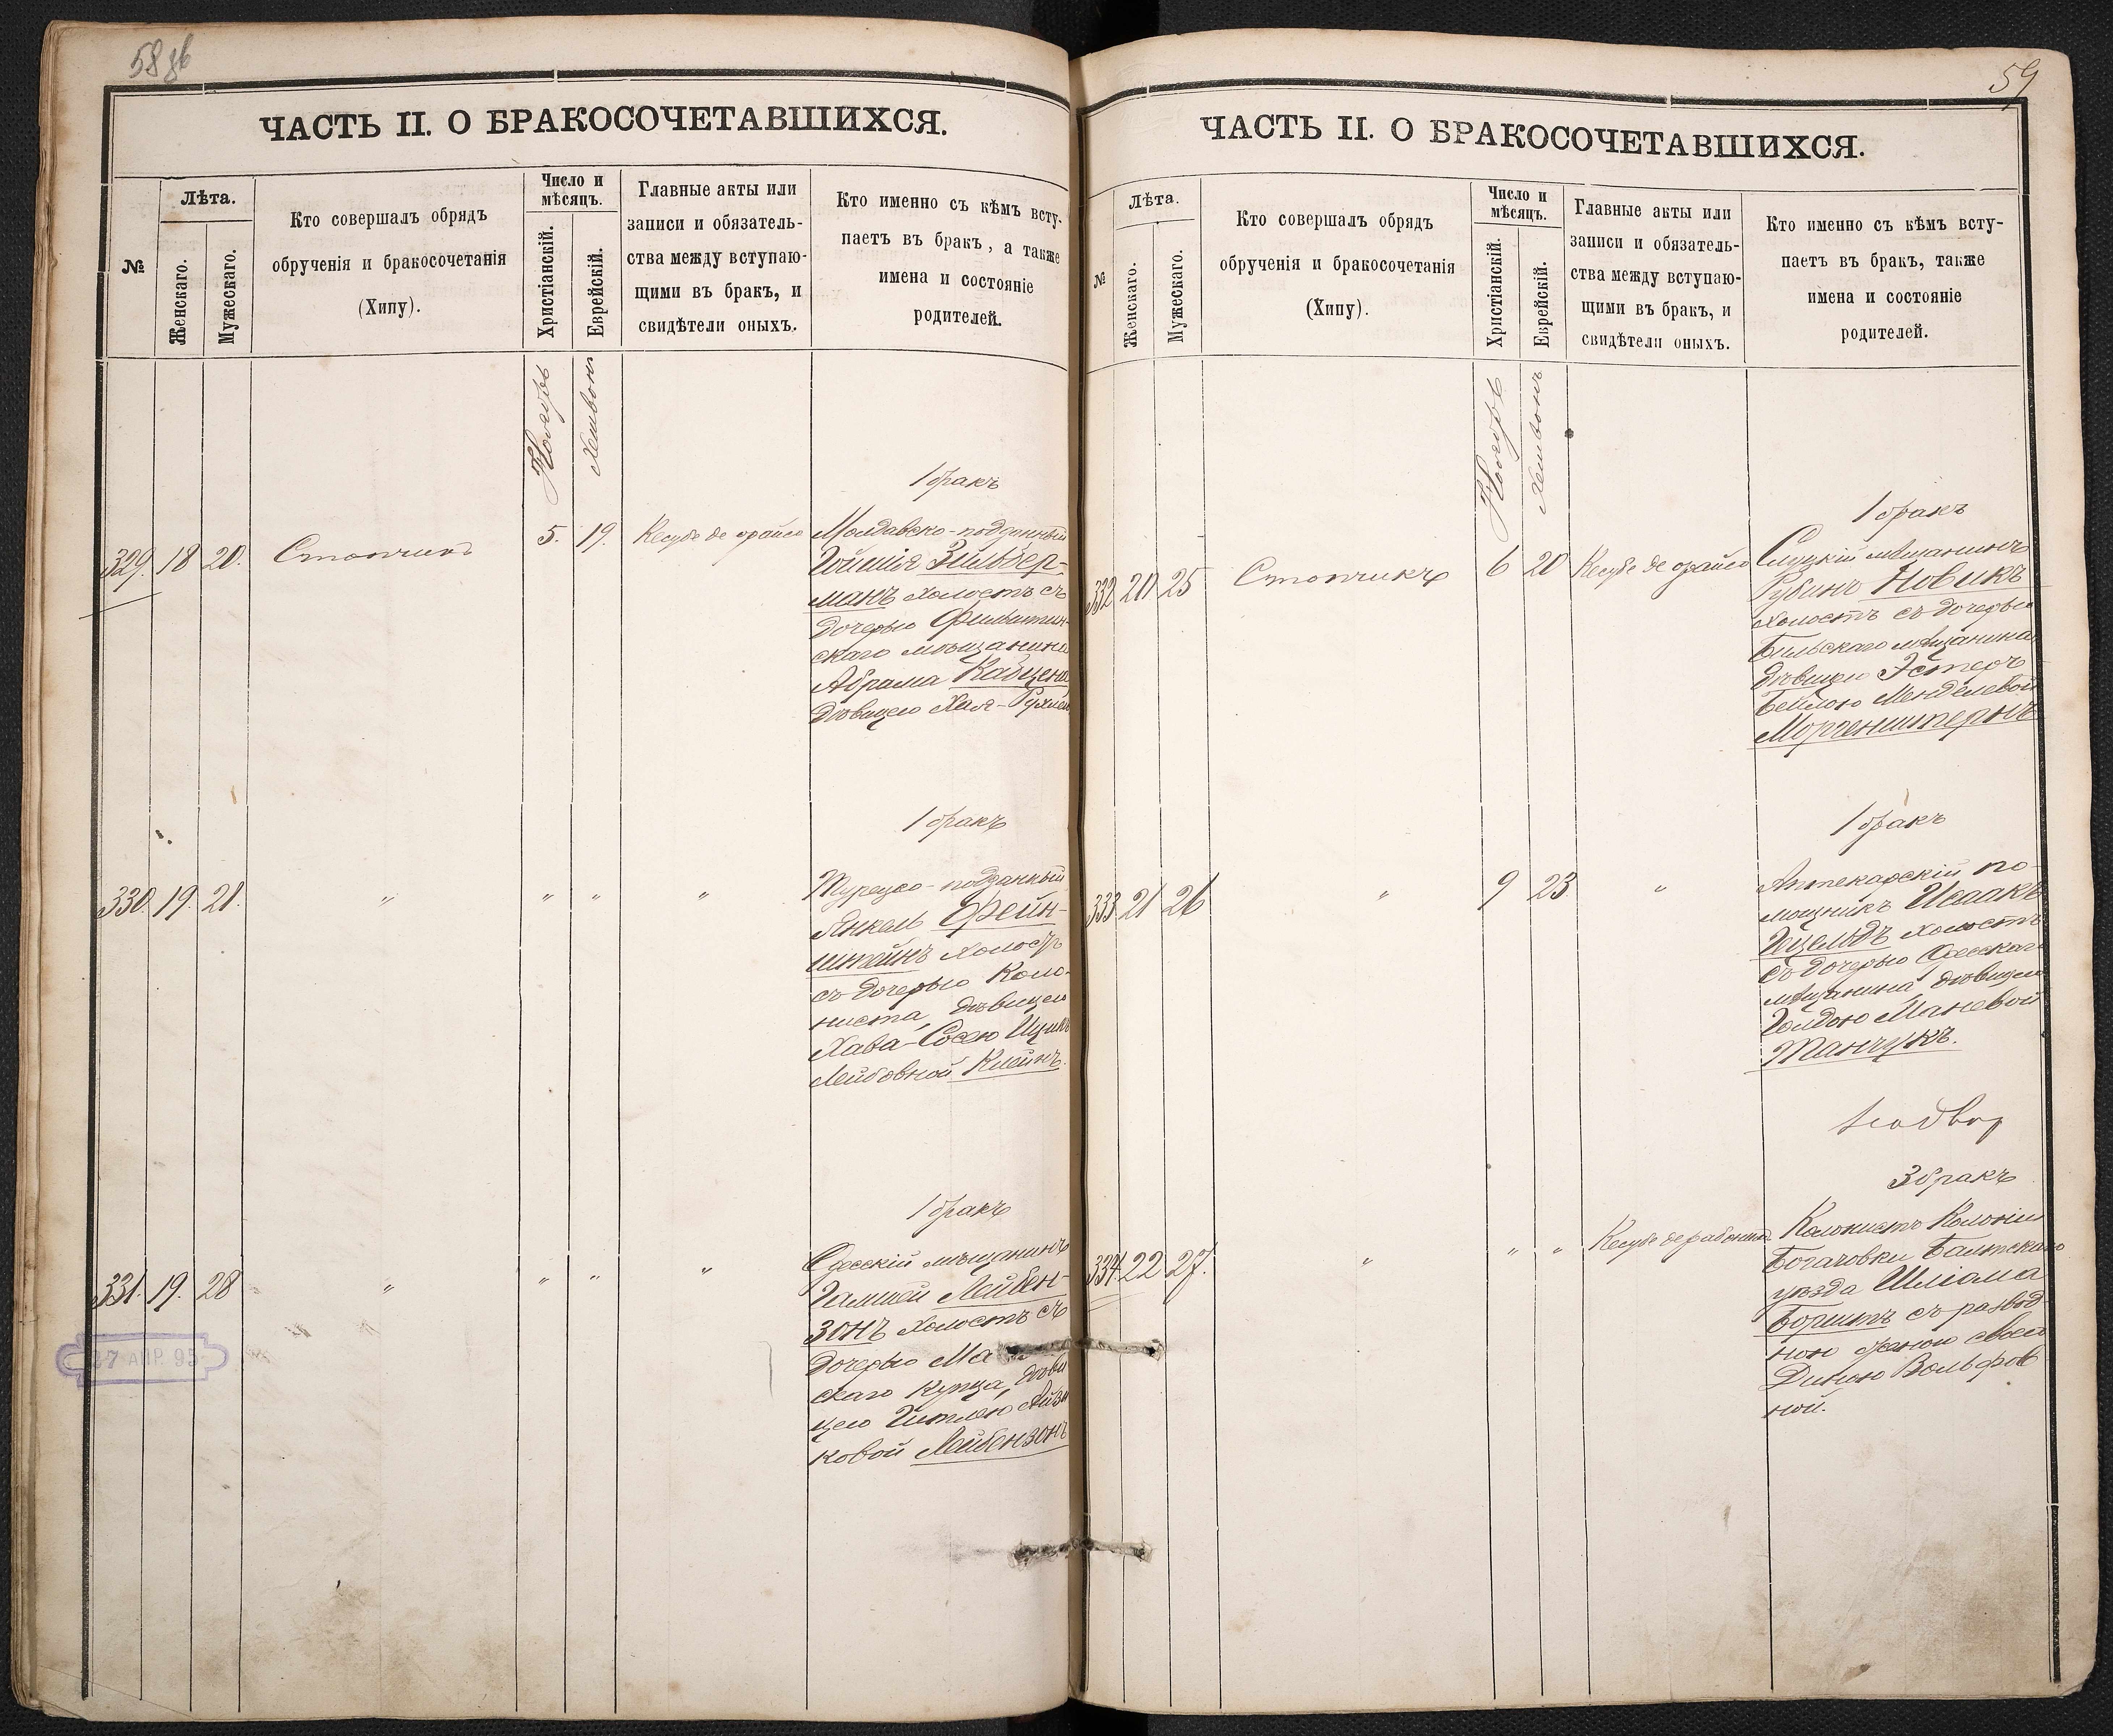 58 об
ЧАСТЬ II. О БРАКОСОЧЕТАВШИХСЯ.
№
Лѣта.
Женскаго.
Мужескаго.
Кто совершалъ обрядъ
обрученія и бракосочетанія
(Хипу).
Число и
мѣсяцъ.
Христіанскій.
Еврейскій.
Главные акты или
записи и обязатель-
ства между вступаю-
щими въ бракъ, и
свидѣтели оныхъ.
Кто именно съ кѣмъ всту-
паетъ въ бракъ, а также
имена и состояніе
родителей.
Ноябрь
Хешвонъ
1 бракъ
329. 18 20. Столчикъ 5. 19. Кесубе де орайсо
Молдавско-подданный
Гойшія Зильбер-
манъ холостъ съ
дочерью
скаго мѣщанина
Абрама Кабцена
дѣвицею Хая-Рухлею
1 бракъ
330. 19. 21. " " " "
Турецко-подданный
Янкель Фейн-
штейнъ холостъ
съ дочерью Коло-
ниста, дѣвицею
Хава-Сосею Ицик
Лейбовной Клейнъ.
1 бракъ
331. 19. 28 " " " "
Одесскій мѣщанинъ
Гамшей Лейбен-
зонъ холостъ съ
дочерью Ма
скаго купца, дѣви
цею Гитлею Айзи
ковой Лейбензонъ
27 АПР. 95
59
ЧАСТЬ II. О БРАКОСОЧЕТАВШИХСЯ.
№
Лѣта.
Женскаго.
Мужескаго.
Кто совершалъ обрядъ
обрученія и бракосочетанія
(Хипу).
Число и
мѣсяцъ.
Христіанскій.
Еврейскій.
Главные акты или
записи и обязатель-
ства между вступаю-
щими въ бракъ, и
свидѣтели оныхъ.
Кто именно съ кѣмъ всту-
паетъ въ бракъ, также
имена и состояніе
родителей.
Ноябрь
Хешвонъ
1 бракъ
332 20 25 Столчикъ 6 20 Кесубе де орайсо
Слуцкій мѣщанинъ
Рубинъ Новикъ
холостъ съ дочерью
Бѣльскаго мѣщанина
дѣвицею Эстеръ
Бейлою Менделевой
Моргенштернъ
1 бракъ
333 21 26 " 9 23 "
Аптекарскій по-
мощникъ Исаакъ
Гецельдъ холостъ
съ дочерью Одесскаго
мѣщанина дѣвицею
Голдою Маневой
Танчукъ.
3 бракъ
334. 22 27. " " " Кесубе дерабонна
Колонистъ Колоніи
Богачовки Балтскаго
уѣзда Шліома
Боршъ съ развод-
ною женою своею
Диною Вольфов
ной.